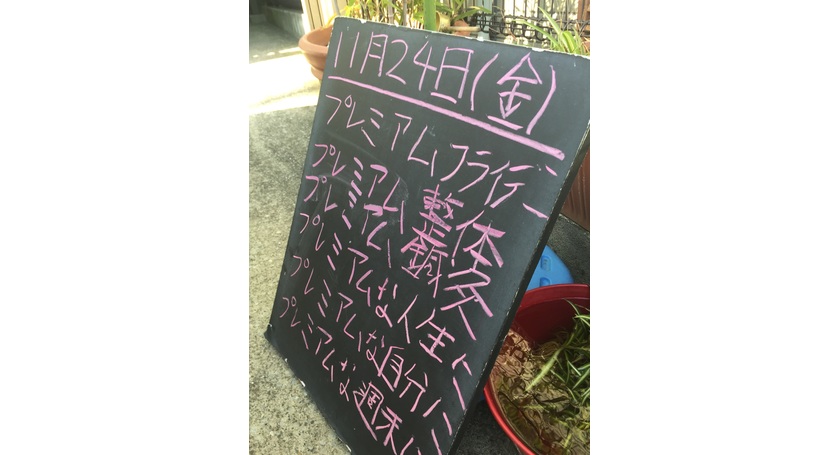 11月24日(金)
プレミアムフライデー
プレミアム整体
プレミアム鍼灸
プレミアムな人生に
プレミアムな自分に
プレミアムな週末に